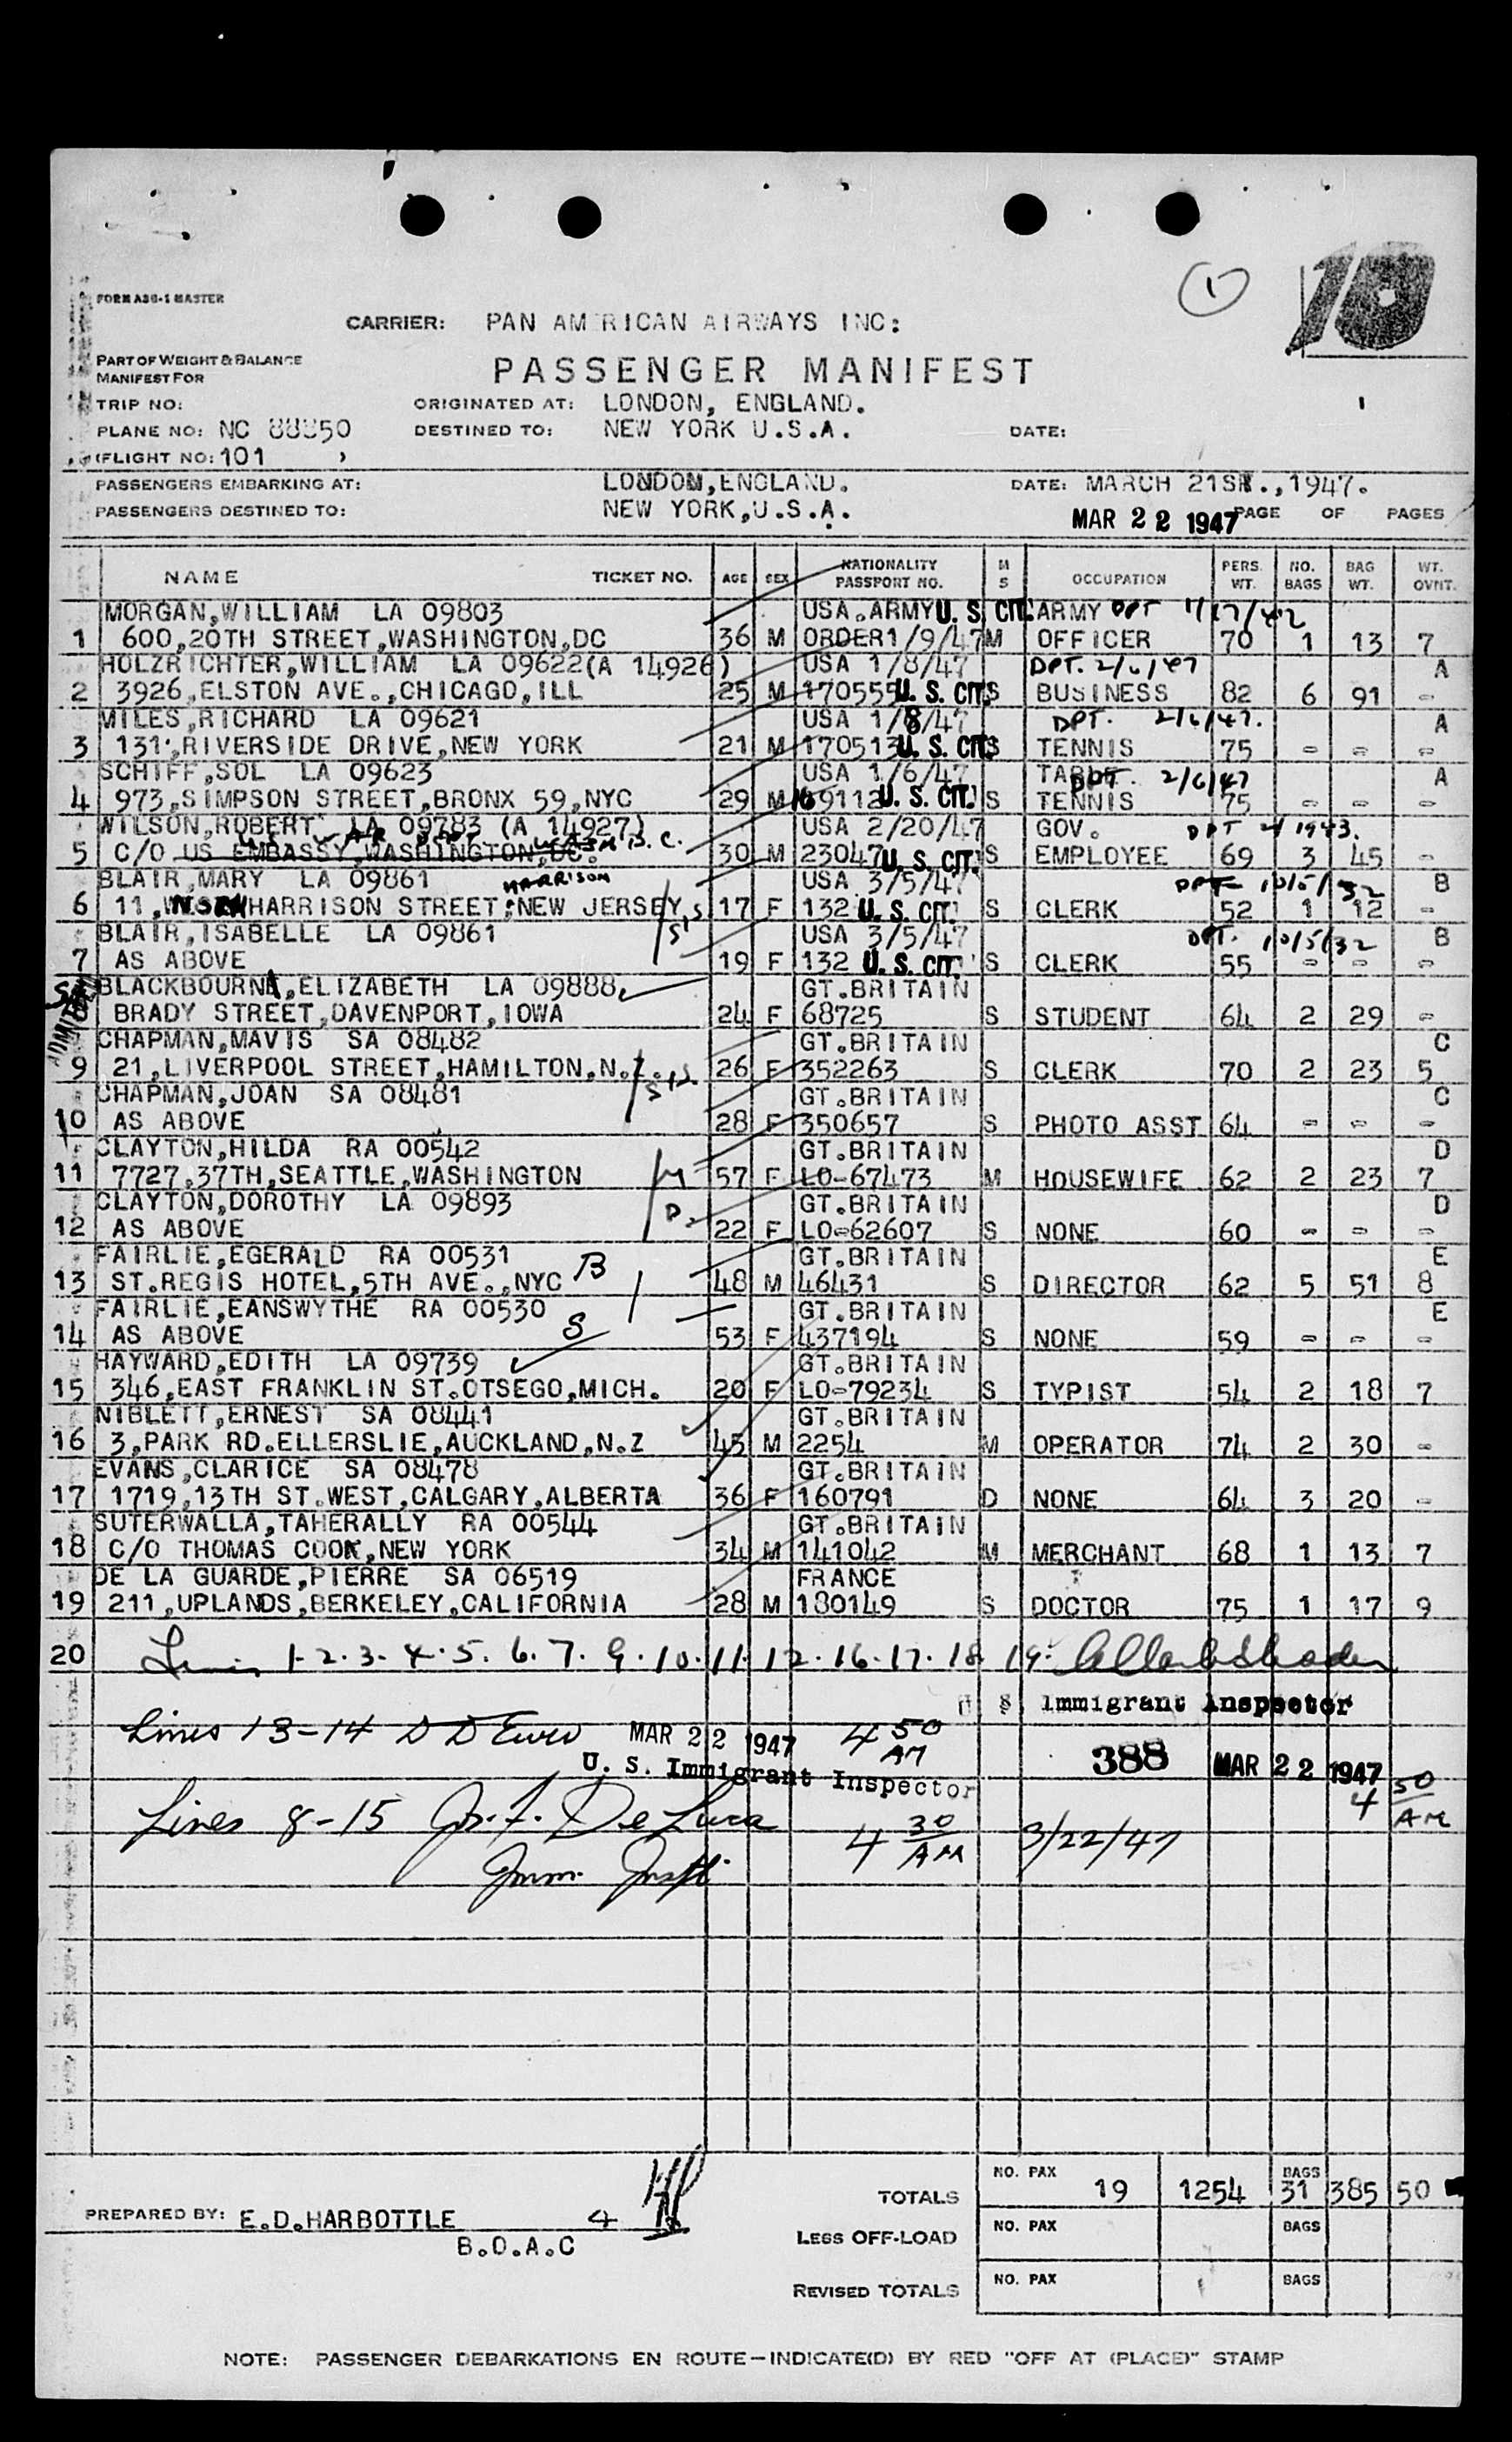 1
10
FORM ASG-1 MASTER
CARRIER: PAN AM RICAN AIRWAYS INC:
PART OF WEIGHT & BALANCE
MANIFEST FOR
PASSENGER MANIFEST
TRIP NO: ORIGINATED AT: LONDON, ENGLAND.
PLANE NO: NC 88850 DESTINED TO: NEW YORK U.S.A. DATE:
(FLIGHT NO: 101 )
PASSENGERS EMBARKING AT: LONDON,ENGLAND. DATE: MARCH 21ST.,1947.
PASSENGERS DESTINED TO: NEW YORK,U.S.A. MAR 22 1947 PAGE OF PAGES
NAME TICKET NO. AGE SEX NATIONALITY PASSPORT NO. M S OCCUPATION PERS. WT. NO. BAGS BAG WT. WT. OVNT.
MORGAN,WILLIAM LA 09803 USA.ARMY U. S. CIT. ARMY DPT 1/17/42
1 600,20TH STREET,WASHINGTON,DC 36 M ORDER1/9/47 M OFFICER 70 1 13 7
HOLZRICHTER,WILLIAM LA 09622(A 14926) USA 1/8/47 DPT. 2/6/47 A
2 3926,ELSTON AVE.,CHICAGO,ILL 25 M 170555 U. S. CIT. S BUSINESS 82 6 91 -
MILES,RICHARD LA 09621 USA 1/8/47 DPT. 2/6/47. A
3 131,RIVERSIDE DRIVE,NEW YORK 21 M 170513 U. S. CIT. S TENNIS 75 - - -
SCHIFF,SOL LA 09623 USA 1/6/47 TABLE DPT. 2/6/47 A
4 973,SIMPSON STREET,BRONX 59,NYC 29 M 169112 U. S. CIT. S TENNIS 75 - - -
WILSON,ROBERT LA 09783 (A 14927) USA 2/20/47 GOV. DPT 2/1943.
5 C/O US EMBASSY,WASHINGTON,DC. 30 M 23047 U. S. CIT. S EMPLOYEE 69 3 45 -
BLAIR,MARY LA 09861 HARRISON USA 3/5/47 DPT 10/5/32 B
6 11, HARRISON STREET,NEW JERSEY, 17 F 132 U. S. CIT. S CLERK 52 1 12 -
BLAIR,ISABELLE LA 09861 USA 3/5/47 DPT. 10/5/32 B
7 AS ABOVE 19 F 132 U. S. CIT. S CLERK 55 - - -
BLACKBOURN,ELIZABETH LA 09888 GT.BRITAIN
ADMITTED BRADY STREET,DAVENPORT,IOWA 24 F 68725 S STUDENT 64 2 29 -
CHAPMAN,MAVIS SA 08482 GT.BRITAIN C
9 21,LIVERPOOL STREET,HAMILTON,N.Z. 26 F 352263 S CLERK 70 2 23 5
CHAPMAN,JOAN SA 08481 GT.BRITAIN C
10 AS ABOVE 28 F 350657 S PHOTO ASST 64 - - -
CLAYTON,HILDA RA 00542 GT.BRITAIN D
11 7727,37TH,SEATTLE,WASHINGTON 57 F LO-67473 M HOUSEWIFE 62 2 23 7
CLAYTON,DOROTHY LA 09893 GT.BRITAIN D
12 AS ABOVE 22 F LO-62607 S NONE 60 - - -
FAIRLIE,EGERALD RA 00531 B GT.BRITAIN E
13 ST.REGIS HOTEL,5TH AVE.,NYC 48 M 46431 S DIRECTOR 62 5 51 8
FAIRLIE,EANSWYTHE RA 00530 S GT.BRITAIN E
14 AS ABOVE 53 F 437194 S NONE 59 - - -
HAYWARD,EDITH LA 09739 GT.BRITAIN
15 346,EAST FRANKLIN ST.OTSEGO,MICH. 20 F LO-79234 S TYPIST 54 2 18 7
NIBLETT,ERNEST SA 08441 GT.BRITAIN
16 3,PARK RD.ELLERSLIE,AUCKLAND,N.Z 45 M 2254 M OPERATOR 74 2 30 -
EVANS,CLARICE SA 08478 GT.BRITAIN
17 1719,13TH ST.WEST,CALGARY,ALBERTA 36 F 160791 D NONE 64 3 20 -
SUTERWALLA,TAHERALLY RA 00544 GT.BRITAIN
18 C/O THOMAS COOK,NEW YORK 34 M 141042 M MERCHANT 68 1 13 7
DE LA GUARDE,PIERRE SA 06519 FRANCE
19 211,UPLANDS,BERKELEY,CALIFORNIA 28 M 180149 S DOCTOR 75 1 17 9
20 Lines 1-2.3.4.5.6.7.9.10.11.12.16.17.18 19.
U S Immigrant Inspector
Lines 13-14 MAR 22 1947 4 50 AM
388 MAR 22 1947 4 50 AM
U. S. Immigrant Inspector
Lines 8-15 De Luca 4 30 AM 3/22/47
Imm. Insp.
TOTALS NO. PAX 19 1254 BAGS 31 385 50
PREPARED BY: E.D.HARBOTTLE 4
B.O.A.C
LESS OFF-LOAD NO. PAX BAGS
REVISED TOTALS NO. PAX BAGS
NOTE: PASSENGER DEBARKATIONS EN ROUTE—INDICATE(D) BY RED "OFF AT (PLACE)" STAMP